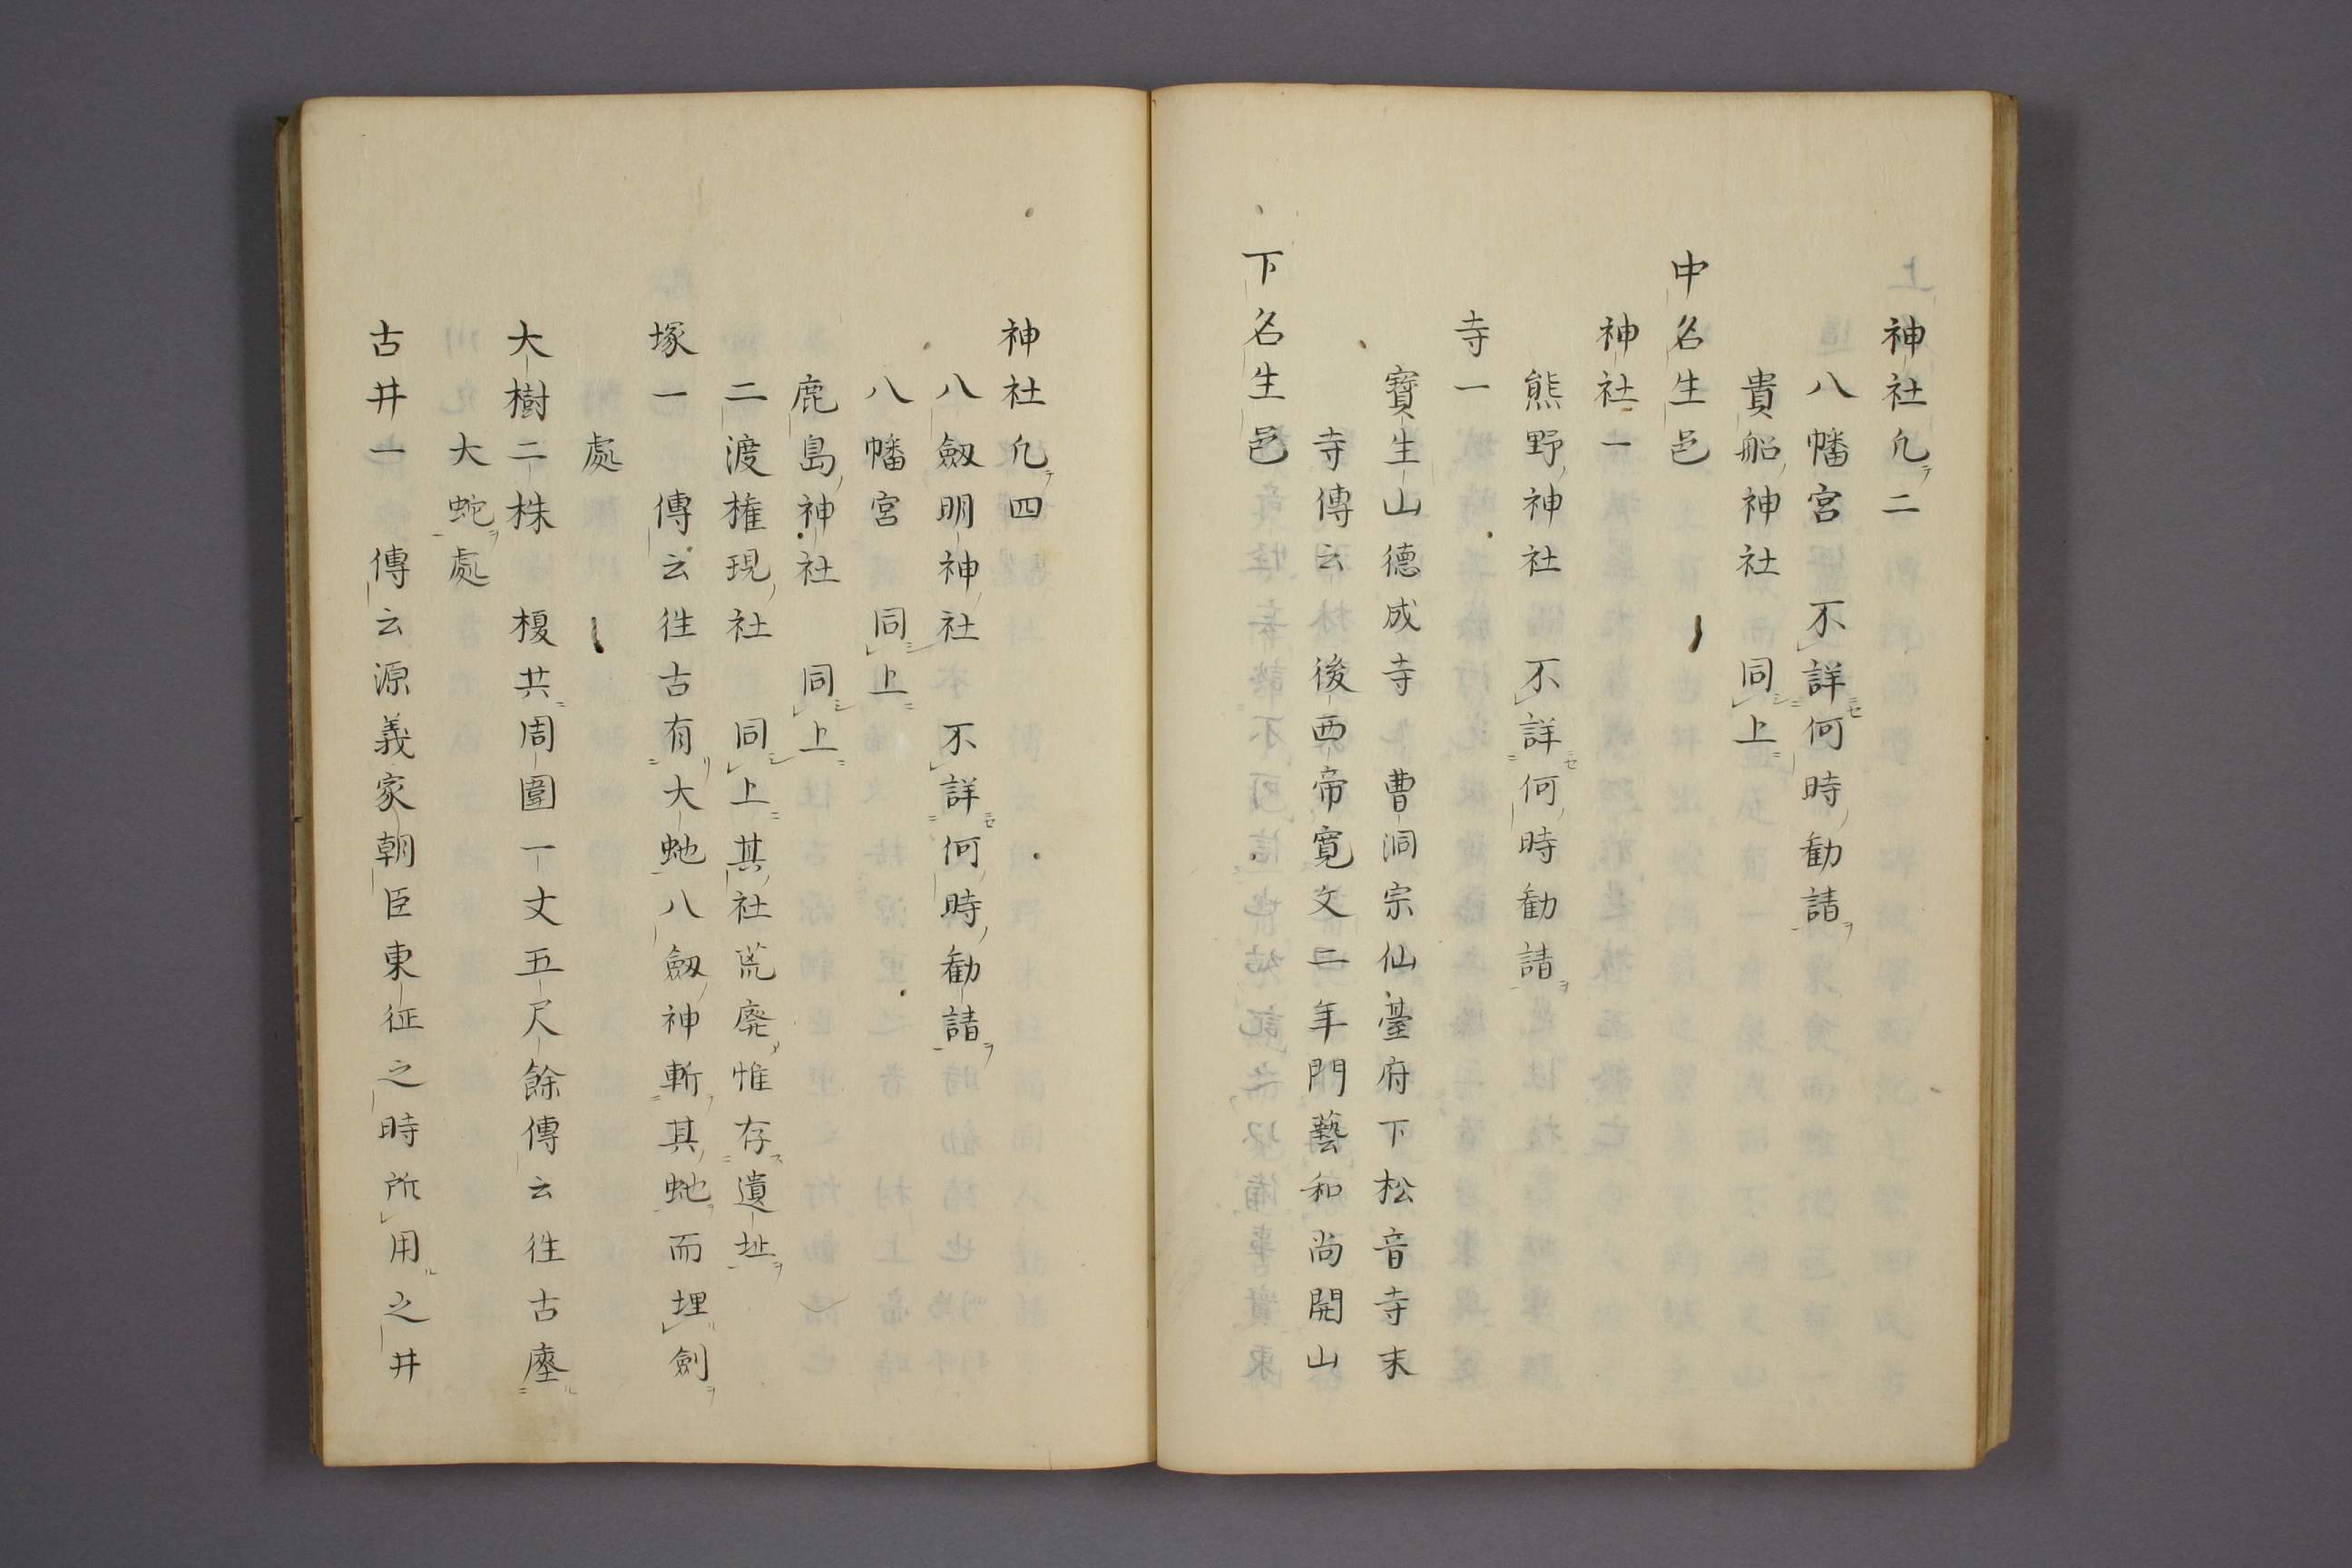 神社凢二
八幡宮 不詳何時勸請
貴船神社 同上
中名生邑
神社一
熊野神社 不詳何時勸請
寺一
寳生山德成寺 曹洞宗仙臺府下松音寺末
寺傳云後西帝寛文二年門藝和尚開山
下名生邑
神社凢四
八劔明神社 不詳何時勸請
八幡宮 同上
鹿島神社 同上
二渡権現社 同上其社荒廃惟存遺址
塚一 傳云徃古有大虵八劔神斬其虵而埋劍
處
大樹二株 榎共周圍一丈五尺餘傳云徃古
大蛇處
古井一 傳云源義家朝臣東征之時所用之井